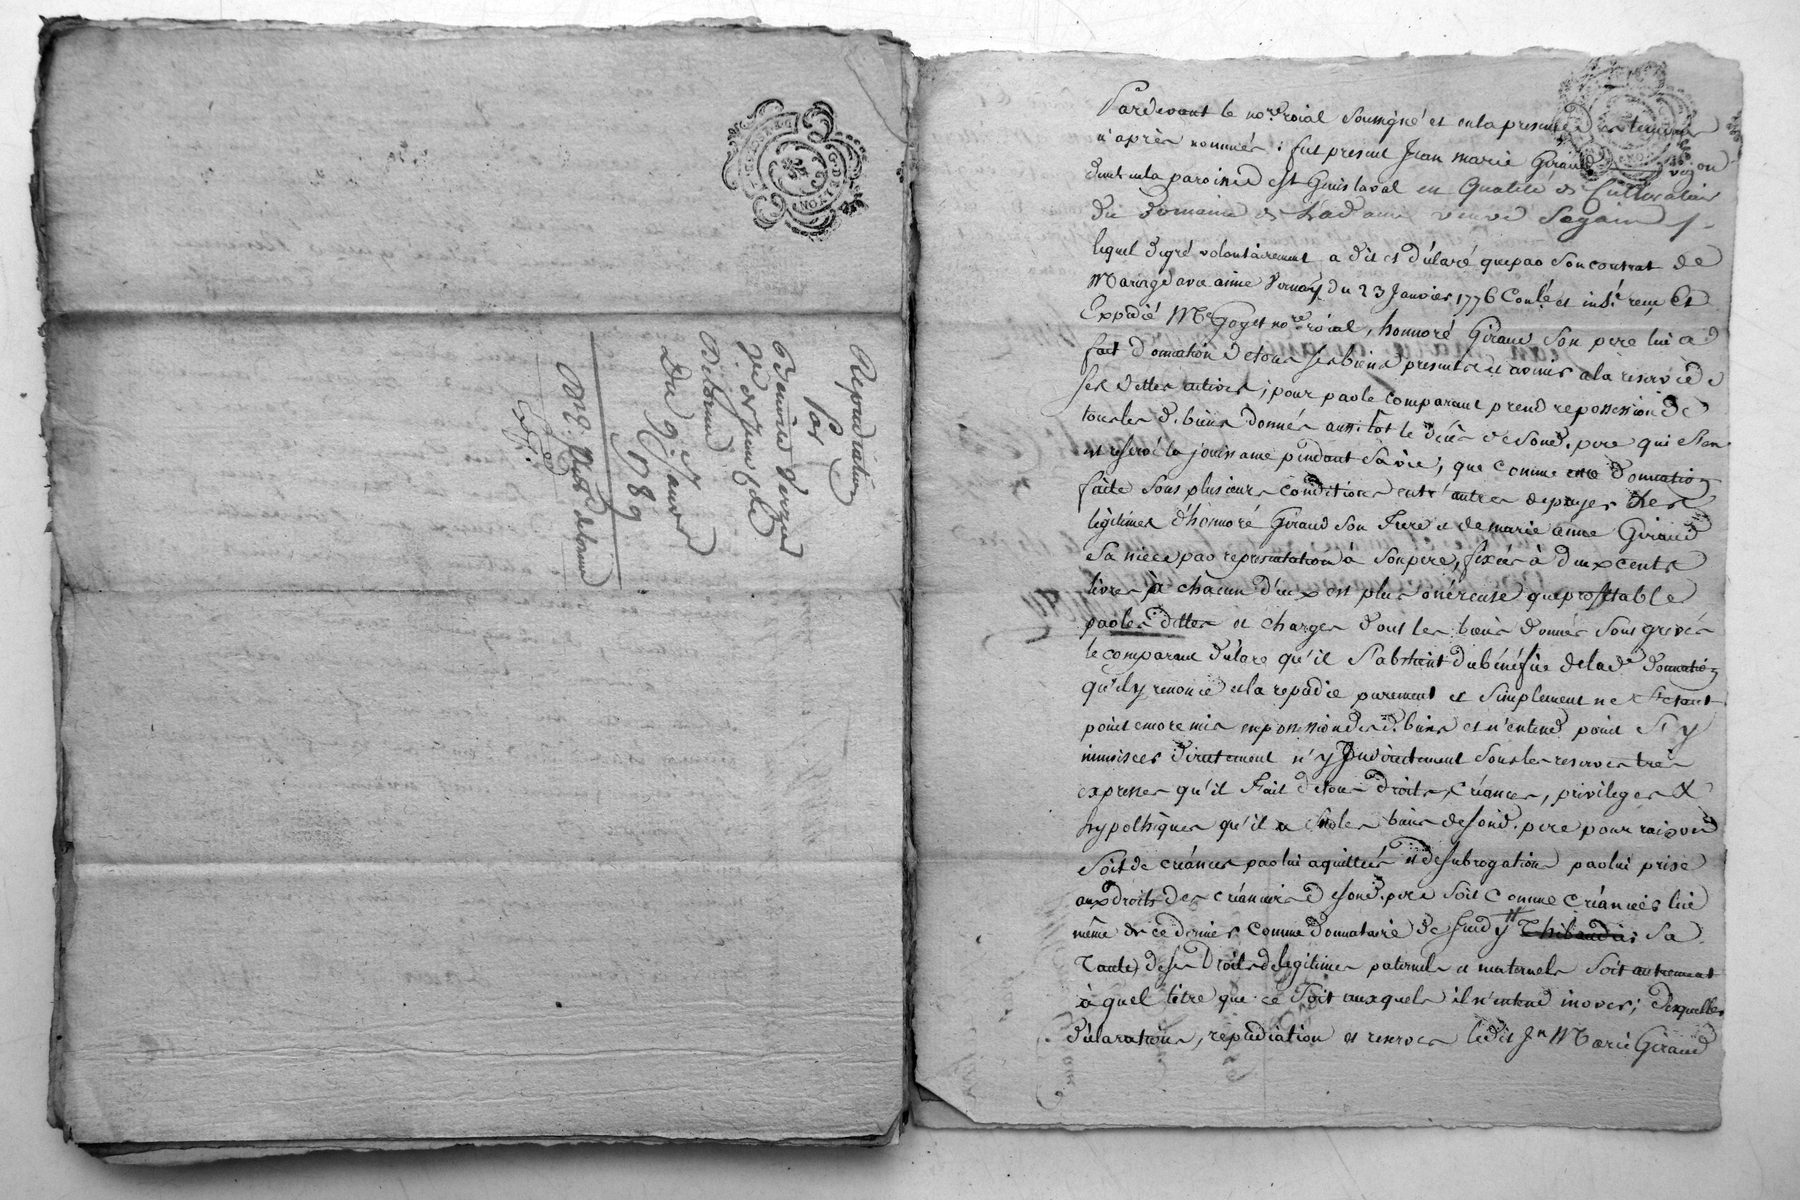 Repudiation
Par
Benoite Verzier
ve de Jean Cl.de
Delorme
Du 9. Janv.
1789
Me. Vve delorme
Pardevant le no.re roial soussigné et en la presence des temoins
ci après nommés : fut present Jean marie Giraud vigneron
dmt en la paroisse de st Genis laval en Qualité de Cultivateur
du domaine de Madame veuve Sagain
lequel degré volontairement a dit et déclaré que par son contrat de
Mariage avec anne Vernay du 23 Janvier 1776 Conlé et insé. reçu et
Expedié Me Goget no.re roial, honnoré Giraud son pere lui a
fait donnation de tous ses biens presents et avenir à la reserve de
ses dettes actives, pour par le comparant prend re possession de
tous les d. biens donnés aussitot le décès de sond. pere qui s'en
est reservé la jouissance pendant sa vie ; que comme cette donnation
faite sous plusieurs conditions entr'autres de payer les
légitimes d'honnoré Giraud son frere et de marie anne Giraud
sa niece par representation à son pere, fixées à deux cents
livres p.r chacun d'eux est plus onéreuse que profitable
par les dettes et charges dont les biens donnés sont grevés
le comparant déclare qu'il s'abstient du bénéfice de lad.e donnation
qu'il y renonce et la repudie purement et simplement ne s'etant
point encore mis en possession desd. biens et n'entend point s'y
immiscer directement n'y Indirectement sous les reserves tres
expresses qu'il fait de tous droits, créances, privileges &
hypothèques qu'il a sur les biens de sond. pere pour raison
soit de créances par lui aquittées et de subrogation par lui prise
aux droits des créanciers de sond. pere soit comme créancier lui
même de ce dernier comme donnataire de feue Thibaudier sa
Tante, de ses droits de légitimes paternels et maternels soit autrement
à quel titre que ce soit auxquels il n'entend inover ; desquelles
déclarations, repudiation et reserves ledit Jn Marie Giraud